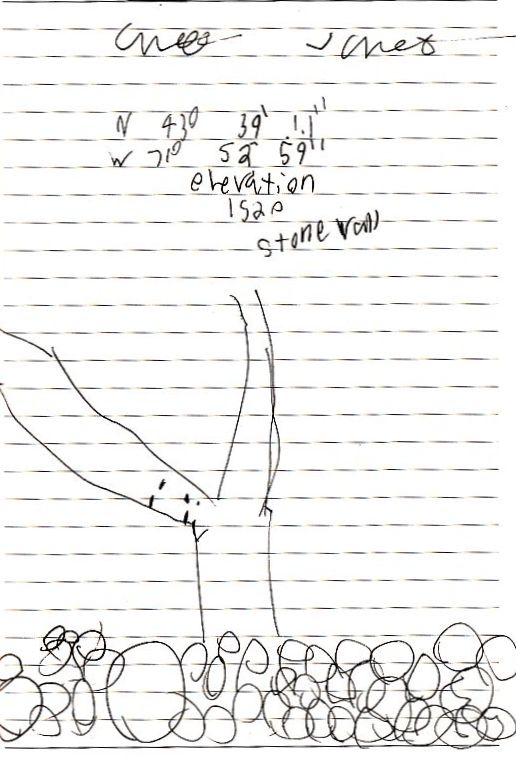 N 43° 39' 1.1"
W 71° 52' 59"
elevation
1520
stone wall